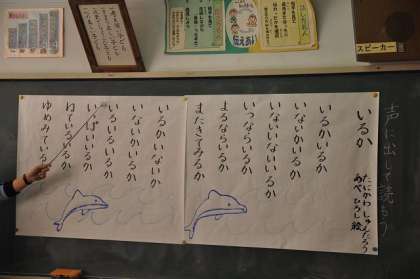 スピーカー
伝えあい
声に出して読もう
いるか
たにかわ しゅんたろう
あべ ひろし 絵
いるかいるか
いないかいるか
いないいないいるか
いつならいるか
よるならいるか
またきてみるか
いるかいないか
いないかいるか
いるいるいるか
いっぱいいるか
ねているいるか
ゆめみているか